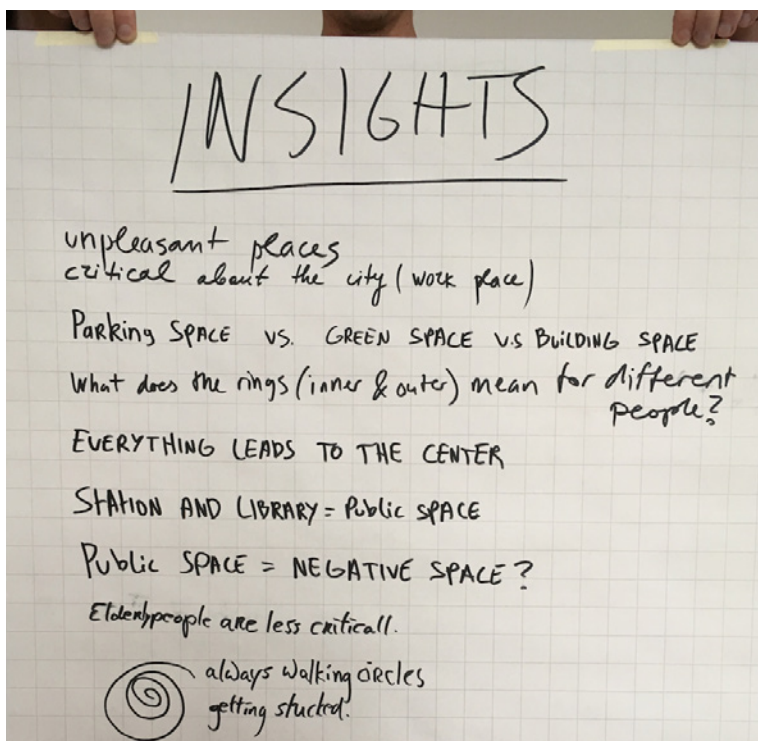 INSIGHTS
unpleasant places
critical about the city (work place)
Parking SPACE vs. GREEN SPACE v.s BUILDING SPACE
What does the rings (inner & outer) mean for different
people?
EVERYTHING LEADS TO THE CENTER
STATION AND LIBRARY = Public SPACE
Public SPACE = NEGATIVE SPACE?
Elderlypeople are less criticall.
always walking circles
getting stucked.